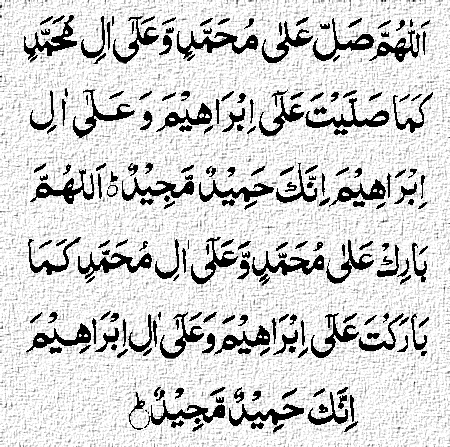 اَللّٰهُمَّ صَلِّ عَلٰى مُحَمَّدٍ وَّعَلٰٓى اٰلِ مُحَمَّدٍ
كَمَا صَلَّيْتَ عَلٰٓى اِبْرَاهِيْمَ وَعَلٰٓى اٰلِ
اِبْرَاهِيْمَ اِنَّكَ حَمِيْدٌ مَّجِيْدٌ ؕ اَللّٰهُمَّ
بَارِكْ عَلٰى مُحَمَّدٍ وَّعَلٰٓى اٰلِ مُحَمَّدٍ كَمَا
بَارَكْتَ عَلٰٓى اِبْرَاهِيْمَ وَعَلٰٓى اٰلِ اِبْرَاهِيْمَ
اِنَّكَ حَمِيْدٌ مَّجِيْدٌ ؕ